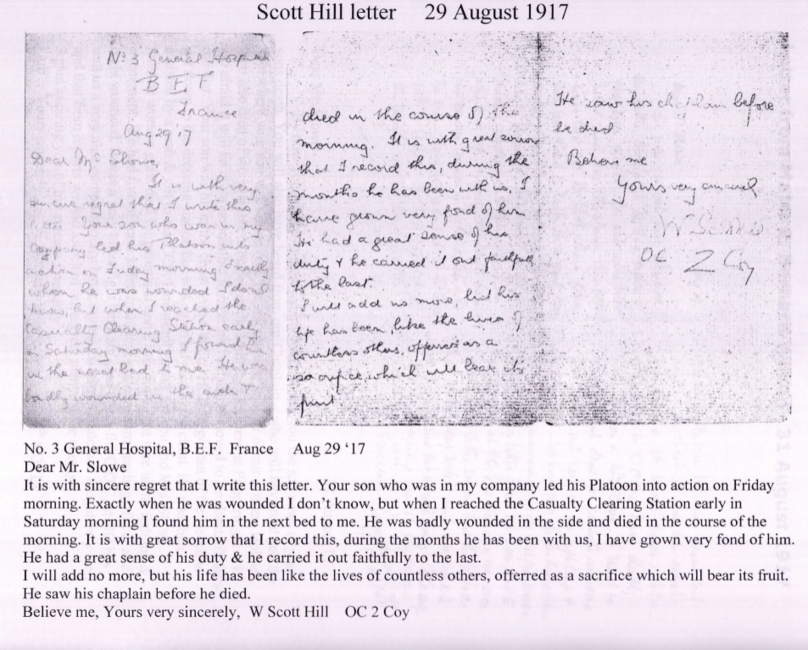 Scott Hill letter 29 August 1917
No 3 General Hospital
B E F
France
Aug 29 '17
Dear Mr Slowe,
It is with very
sincere regret that I write this
letter. Your son who was in my
Company led his Platoon into
action on Friday morning Exactly
when he was wounded I don't
know, but when I reached the
Casualty Clearing Station early
on Saturday morning I found him
in the next bed to me. He was
badly wounded in the side &
died in the course of the
morning. It is with great sorrow
that I record this, during the
months he has been with us, I
have grown very fond of him
He had a great sense of his
duty & he carried it out faithfully
to the last.
I will add no more, but his
life has been like the lives of
countless others, offered as a
sacrifice which will bear its
fruit
He saw his chaplain before
he died
Believe me
Yours very sincerely
W Scott
OC Z Coy
No. 3 General Hospital, B.E.F. France Aug 29 ‘17
Dear Mr. Slowe
It is with sincere regret that I write this letter. Your son who was in my company led his Platoon into action on Friday
morning. Exactly when he was wounded I don’t know, but when I reached the Casualty Clearing Station early in
Saturday morning I found him in the next bed to me. He was badly wounded in the side and died in the course of the
morning. It is with great sorrow that I record this, during the months he has been with us, I have grown very fond of him.
He had a great sense of his duty & he carried it out faithfully to the last.
I will add no more, but his life has been like the lives of countless others, offerred as a sacrifice which will bear its fruit.
He saw his chaplain before he died.
Believe me, Yours very sincerely, W Scott Hill OC 2 Coy